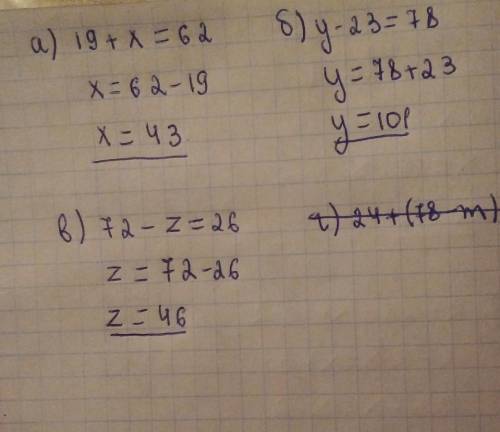 а) 19 + x = 62
x = 62 - 19
x = 43
б) y - 23 = 78
y = 78 + 23
y = 101
в) 72 - z = 26
z = 72 - 26
z = 46
г) 24 + (78 - m)